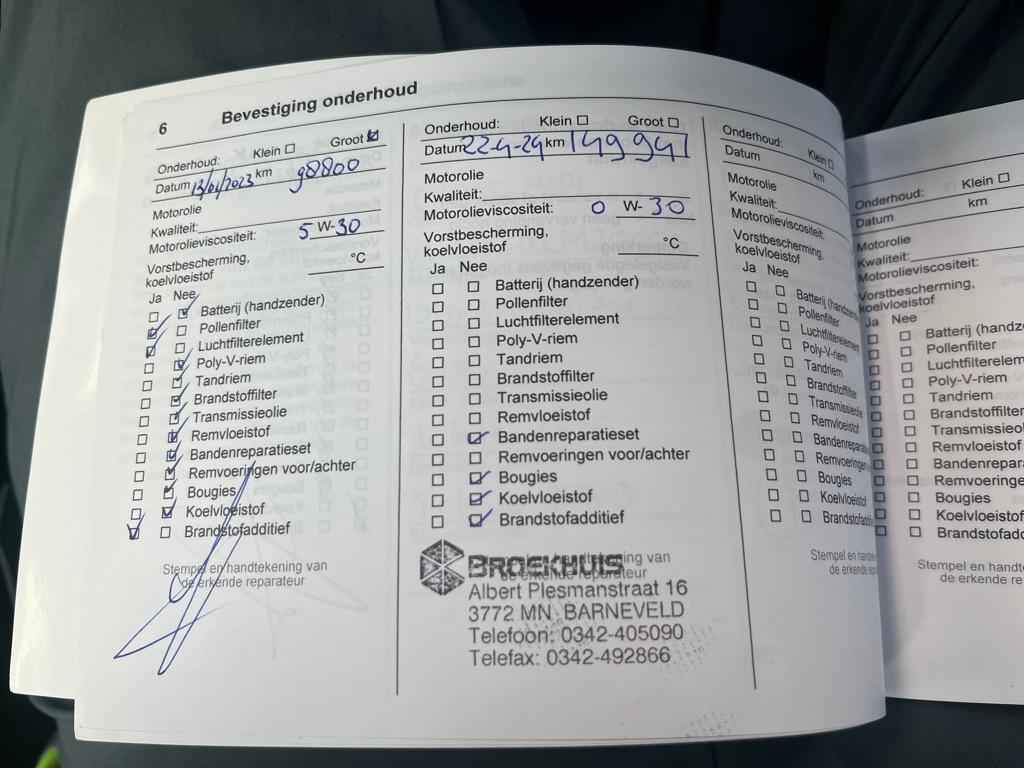 6 Bevestiging onderhoud
Onderhoud: Klein ☐ Groot ☑
Datum 13/04/2023 km 98800
Motorolie
Kwaliteit:
Motorolieviscositeit: 5 W-30
Vorstbescherming,
koelvloeistof °C
Ja Nee
☐ ☑ Batterij (handzender)
☑ ☐ Pollenfilter
☑ ☐ Luchtfilterelement
☐ ☑ Poly-V-riem
☐ ☑ Tandriem
☐ ☑ Brandstoffilter
☐ ☑ Transmissieolie
☐ ☑ Remvloeistof
☐ ☑ Bandenreparatieset
☐ ☑ Remvoeringen voor/achter
☐ ☑ Bougies
☐ ☑ Koelvloeistof
☑ ☐ Brandstofadditief
Stempel en handtekening van
de erkende reparateur
Onderhoud: Klein ☐ Groot ☐
Datum 22-4-24 km 149941
Motorolie
Kwaliteit:
Motorolieviscositeit: 0 W-30
Vorstbescherming,
koelvloeistof °C
Ja Nee
☐ ☐ Batterij (handzender)
☐ ☐ Pollenfilter
☐ ☐ Luchtfilterelement
☐ ☐ Poly-V-riem
☐ ☐ Tandriem
☐ ☐ Brandstoffilter
☐ ☐ Transmissieolie
☐ ☐ Remvloeistof
☐ ☑ Bandenreparatieset
☐ ☐ Remvoeringen voor/achter
☐ ☑ Bougies
☐ ☑ Koelvloeistof
☐ ☑ Brandstofadditief
handtekening van
de erkende reparateur
BROEKHUIS
Albert Plesmanstraat 16
3772 MN BARNEVELD
Telefoon: 0342-405090
Telefax: 0342-492866
Onderhoud: Klein ☐
Datum km
Motorolie
Kwaliteit:
Motorolieviscositeit:
Vorstbescherming,
koelvloeistof
Ja Nee
☐ ☐ Batterij (handzen
☐ ☐ Pollenfilter
☐ ☐ Luchtfilterelement
☐ ☐ Poly-V-riem
☐ ☐ Tandriem
☐ ☐ Brandstoffilter
☐ ☐ Transmissieolie
☐ ☐ Remvloeistof
☐ ☐ Bandenrepara
☐ ☐ Remvoeringen
☐ ☐ Bougies
☐ ☐ Koelvloeistof
☐ ☐ Brandstofadditi
Stempel en handtek
de erkende repa
Onderhoud: Klein ☐
Datum km
Motorolie
Kwaliteit:
Motorolieviscositeit:
Vorstbescherming,
koelvloeistof
Ja Nee
☐ ☐ Batterij (handze
☐ ☐ Pollenfilter
☐ ☐ Luchtfilterelem
☐ ☐ Poly-V-riem
☐ ☐ Tandriem
☐ ☐ Brandstoffilter
☐ ☐ Transmissieo
☐ ☐ Remvloeistof
☐ ☐ Bandenrepar
☐ ☐ Remvoeringe
☐ ☐ Bougies
☐ ☐ Koelvloeistof
☐ ☐ Brandstofadd
Stempel en handte
de erkende re